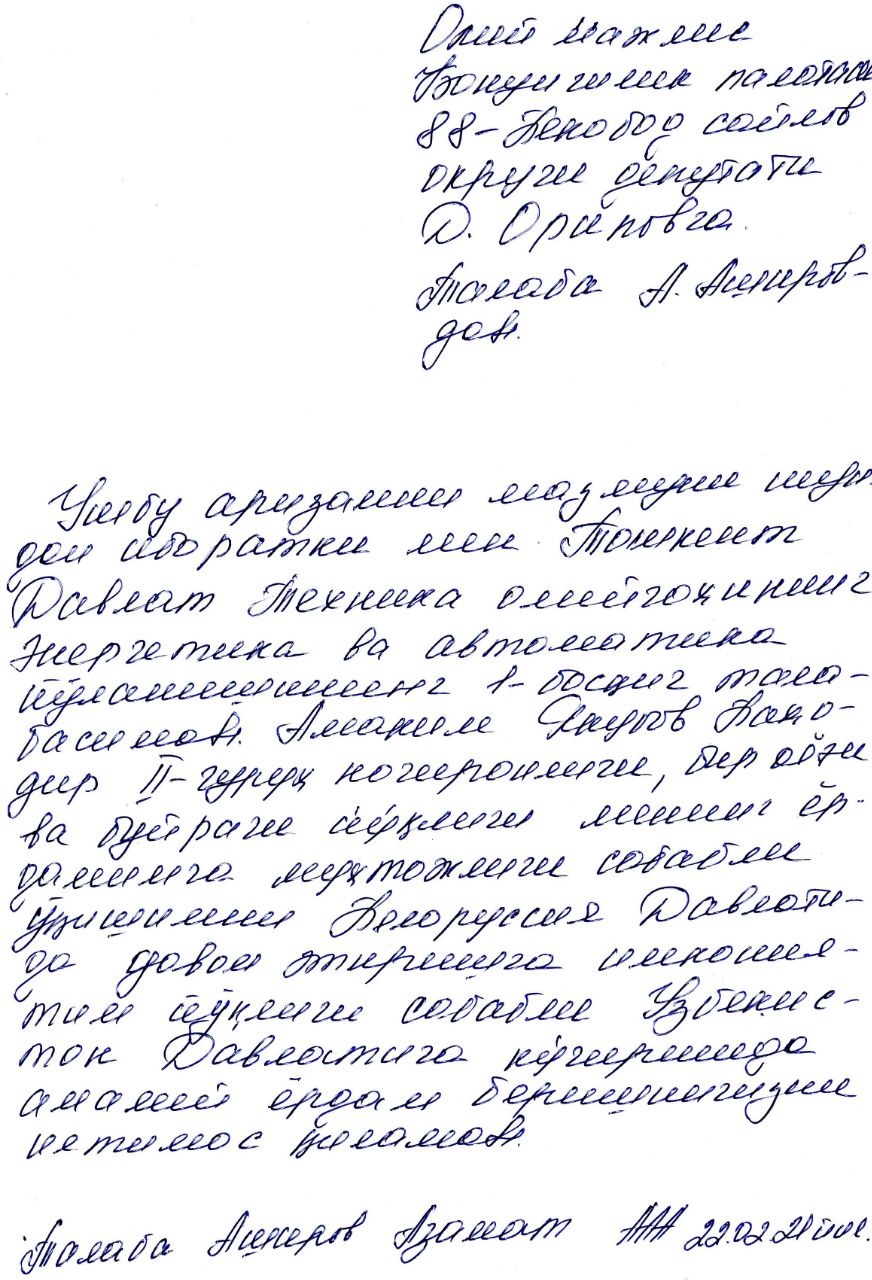 Олий мажлис
Қонунчилик палатаси
88-Бекобод сайлов
округи депутати
Д. Ориповга.
Талаба А. Аширов-
дан.
Ушбу аризамни мазмуни шун
дан иборатки мен Тошкент
Давлат Техника олийгоҳининг
Энергетика ва автоматика
йўналишининг 1-босқич тала-
басиман. Амаким Яқубов Баҳо-
дир II-гуруҳ ногиронлиги, бир оёғи
ва буйраги йўқлиги менинг ёр-
дамимга муҳтожлиги сабабли
ўқишимни Белоруссия Давлати-
да давом эттиришга имкония-
тим йўқлиги сабабли Узбекис-
тон Давлатига кўчиришда
амалий ёрдам беришингизни
илтимос қиламан.
Талаба Аширов Азамат 22.02.21 йил.